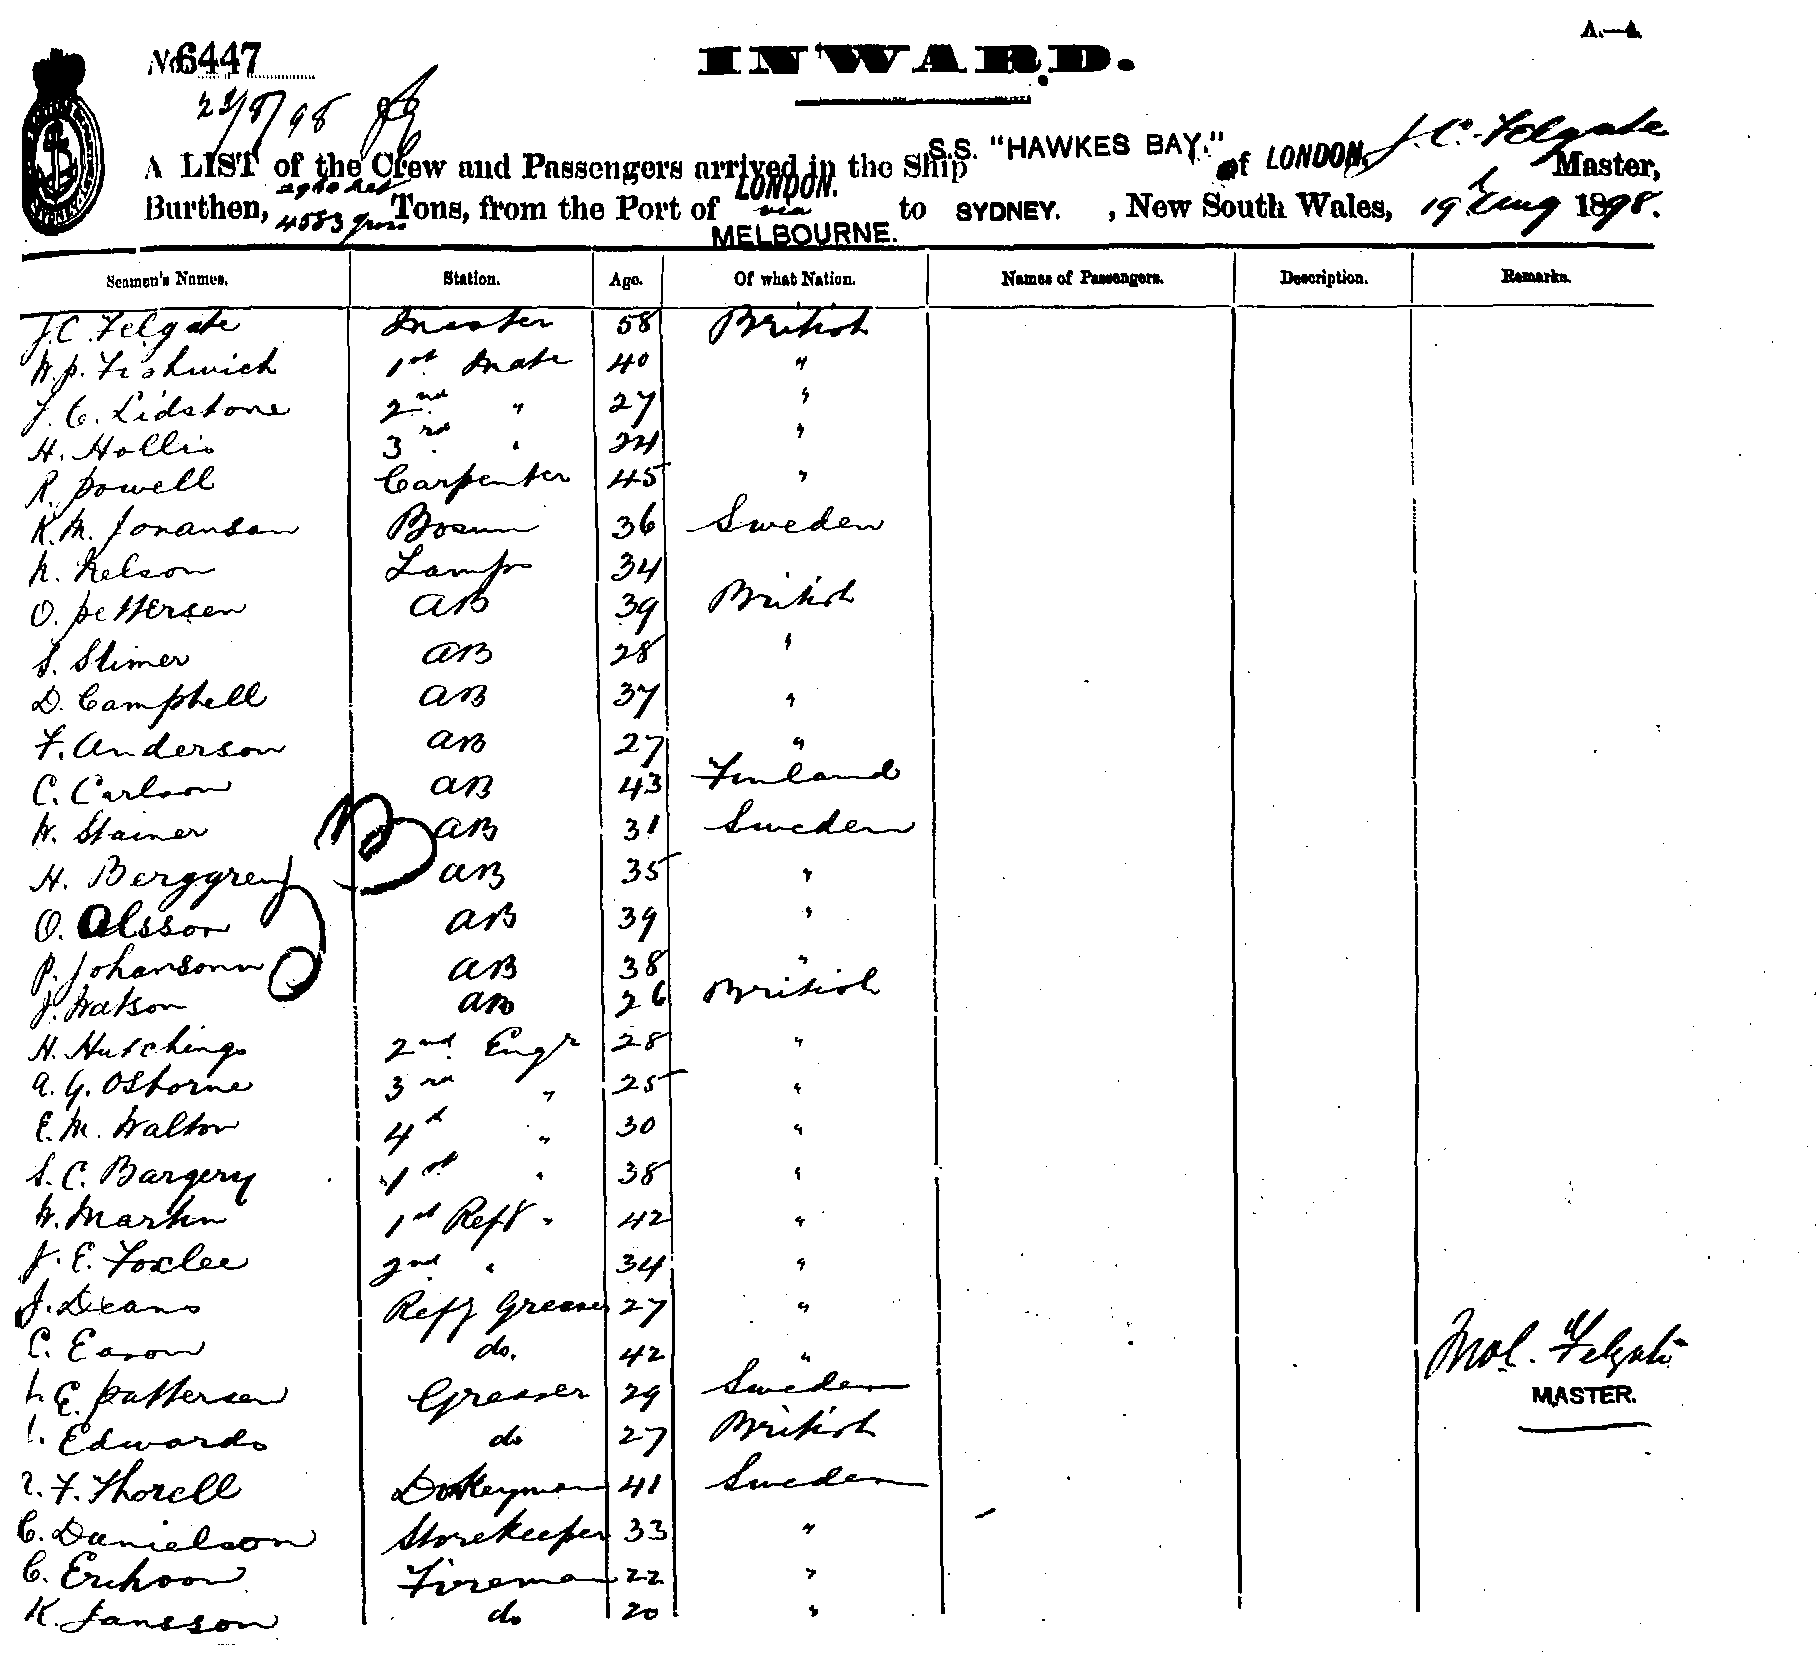 A.—A.
No. 6447
INWARD.
23/8/98
A LIST of the Crew and Passengers arrived in the Ship S.S. "HAWKES BAY." of LONDON, J. C. Felgate Master,
Burthen, 4583 gross Tons, from the Port of LONDON. via MELBOURNE. to SYDNEY. , New South Wales, 19th Aug 1898.
Seamen's Names. Station. Age. Of what Nation. Names of Passengers. Description. Remarks.
J. C. Felgate Master 58 British
W. P. Fishwick 1st Mate 40 "
J. C. Lidstone 2nd " 27 "
H. Hollis 3rd " 24 "
R. Powell Carpenter 45 "
K. M. Jonanson Bosun 36 Sweden
N. Nelson Lamps 34
O. Pettersen AB 39 British
S. Slimer AB 28 "
D. Campbell AB 37 "
F. Anderson AB 27 "
C. Carlson AB 43 Finland
W. Stainer AB 31 Sweden
H. Berggren AB 35 "
O. Olsson AB 39 "
P. Johansonn AB 38 "
J. Watson AB 26 British
H. Hutchings 2nd Engr 28 "
A. G. Osborne 3rd " 25 "
E. M. Walton 4th " 30 "
S. C. Bargery 1st " 38 "
W. Martin 1st Refr " 42 "
J. E. Foxlee 2nd " 34 "
J. Deans Refg Greaser 27 "
C. Eason do. 42 "
E. Pattersen Greaser 29 Sweden
Edwards do 27 British
F. Thorell Donkeyman 41 Sweden
C. Danielson Storekeeper 33 "
C. Erikson Fireman 22 "
K. Jansson do 20 "
Felgate
MASTER.